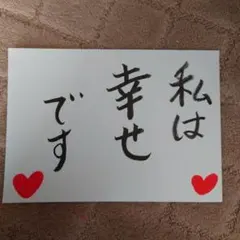 私は
幸せ
です